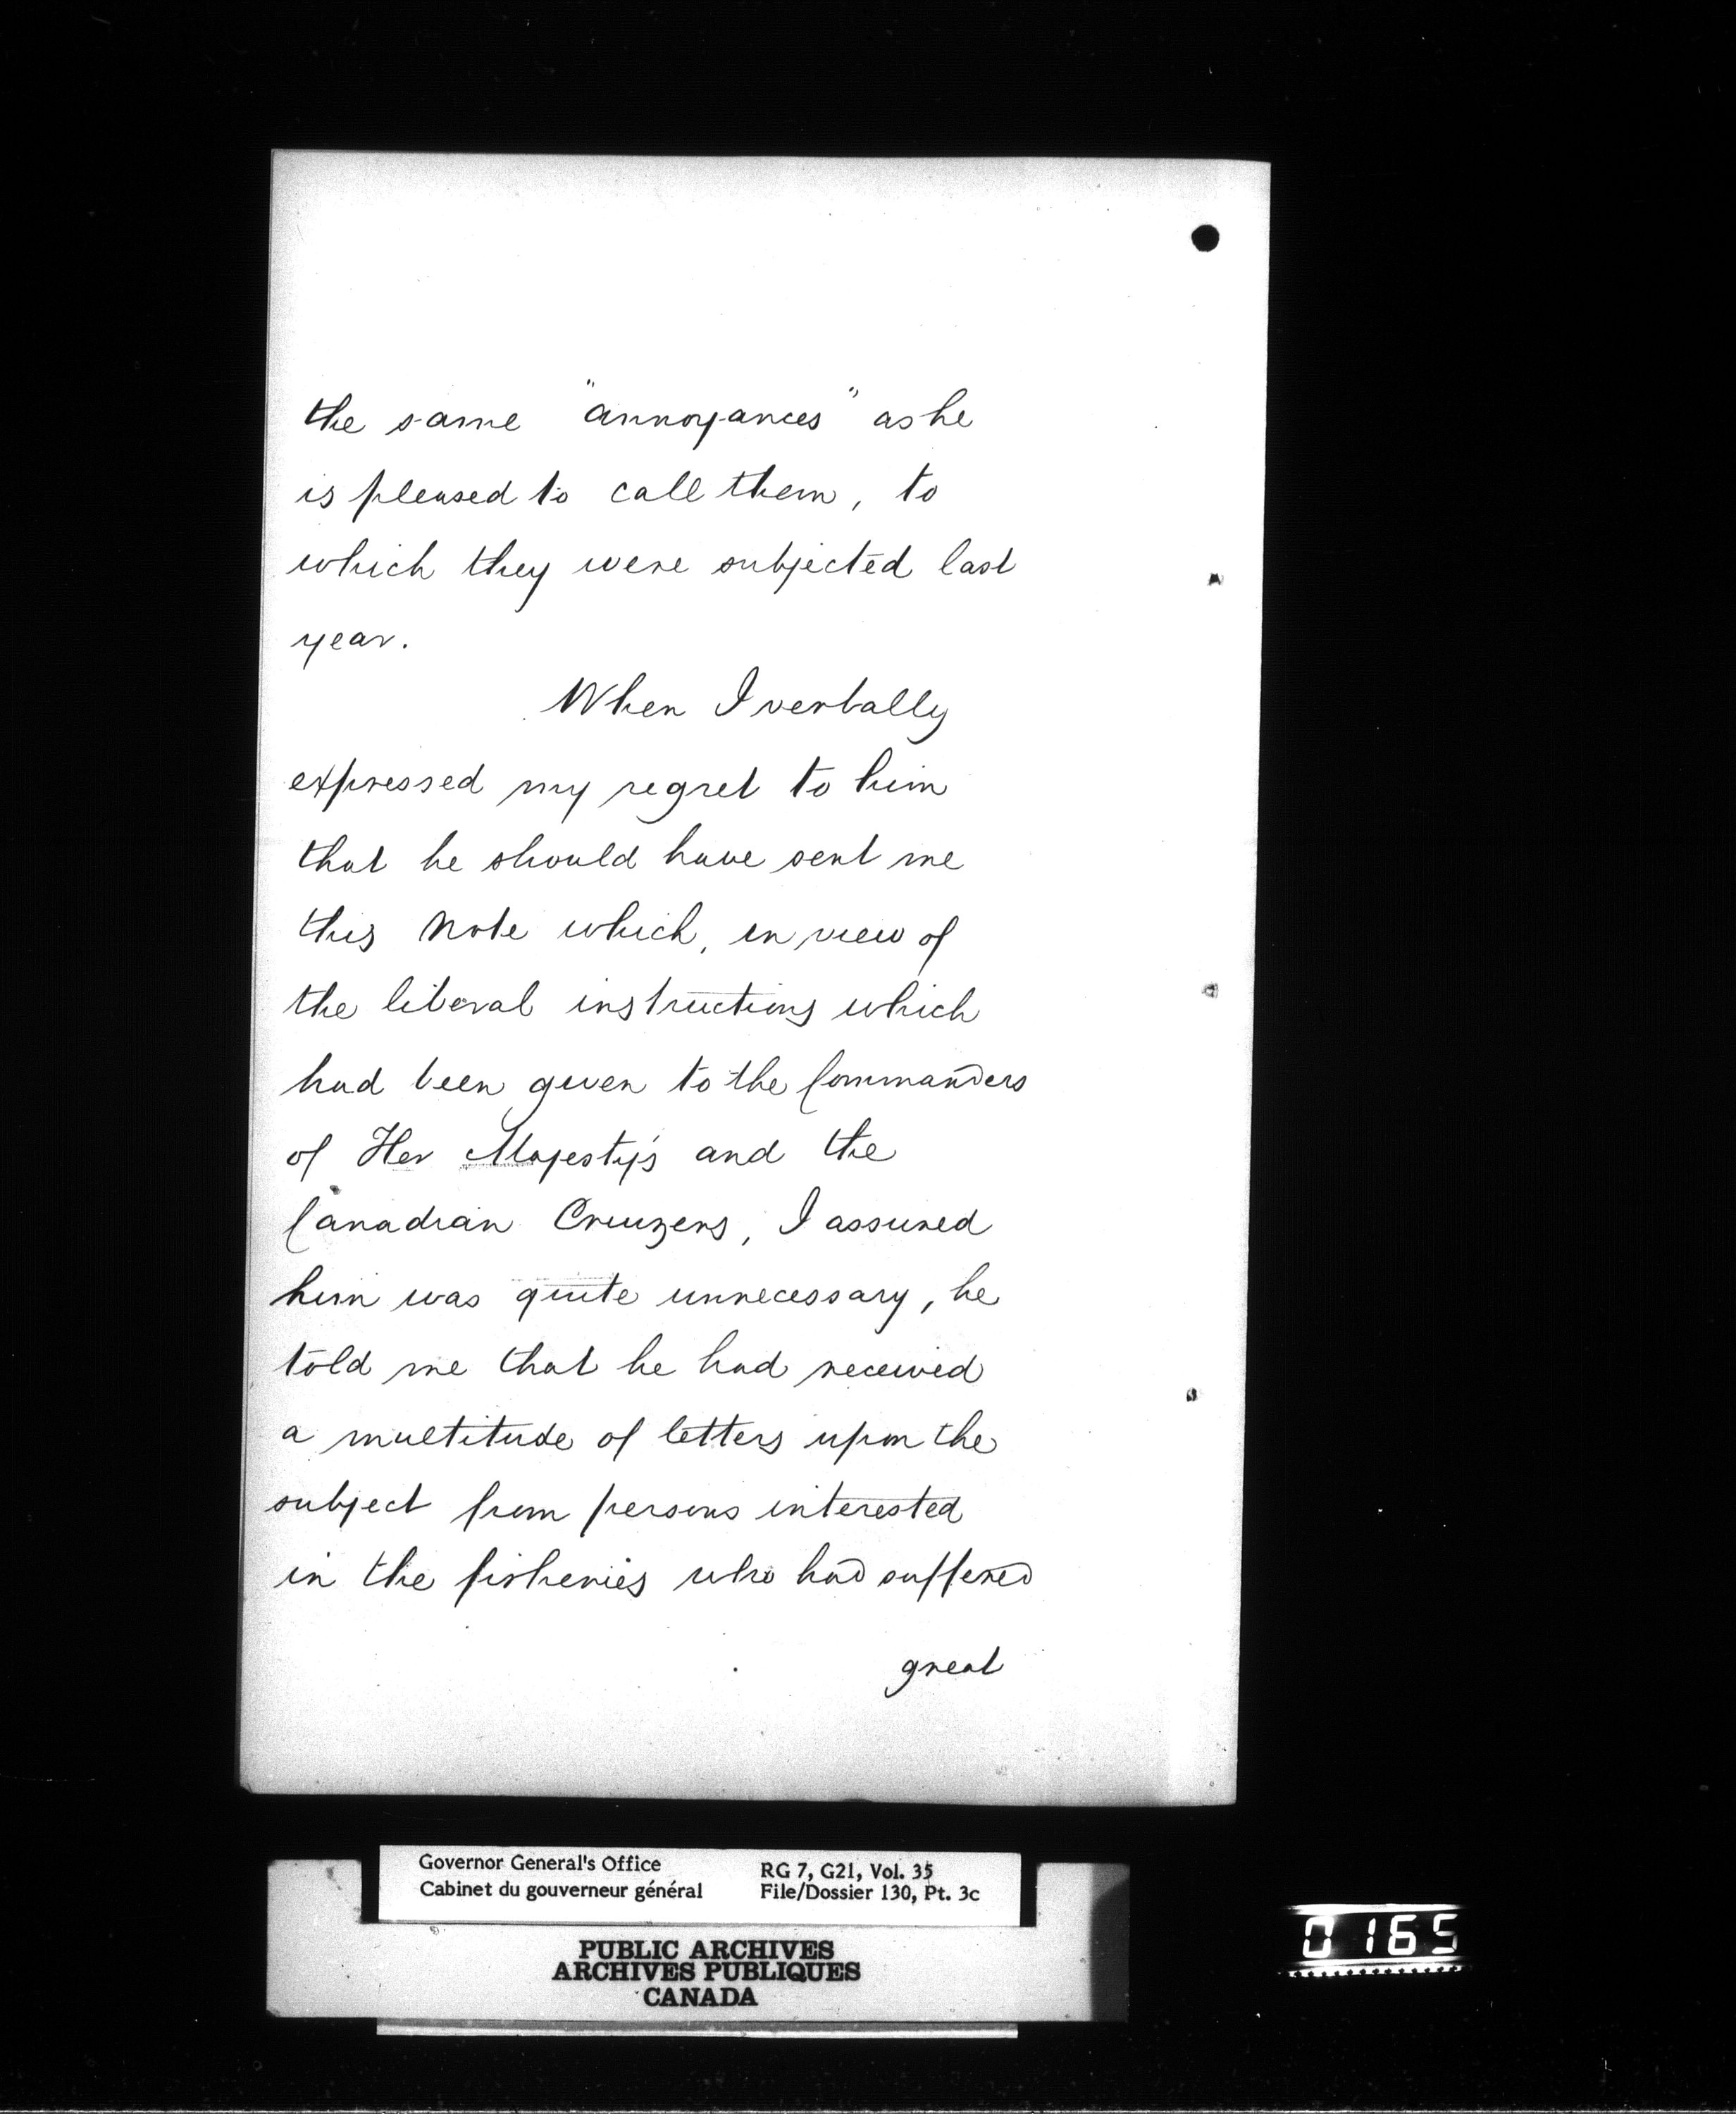 the same "annoyances" as he
is pleased to call them, to
which they were subjected last
year.
When I verbally
expressed my regret to him
that he should have sent me
this Note which, in view of
the liberal instructions which
had been given to the Commanders
of Her Majesty's and the
Canadian Cruizers, I assured
him was quite unnecessary, he
told me that he had received
a multitude of letters upon the
subject from persons interested
in the fisheries who had suffered
great
Governor General's Office
Cabinet du gouverneur général
RG 7, G21, Vol. 35
File/Dossier 130, Pt. 3c
PUBLIC ARCHIVES
ARCHIVES PUBLIQUES
CANADA
0165